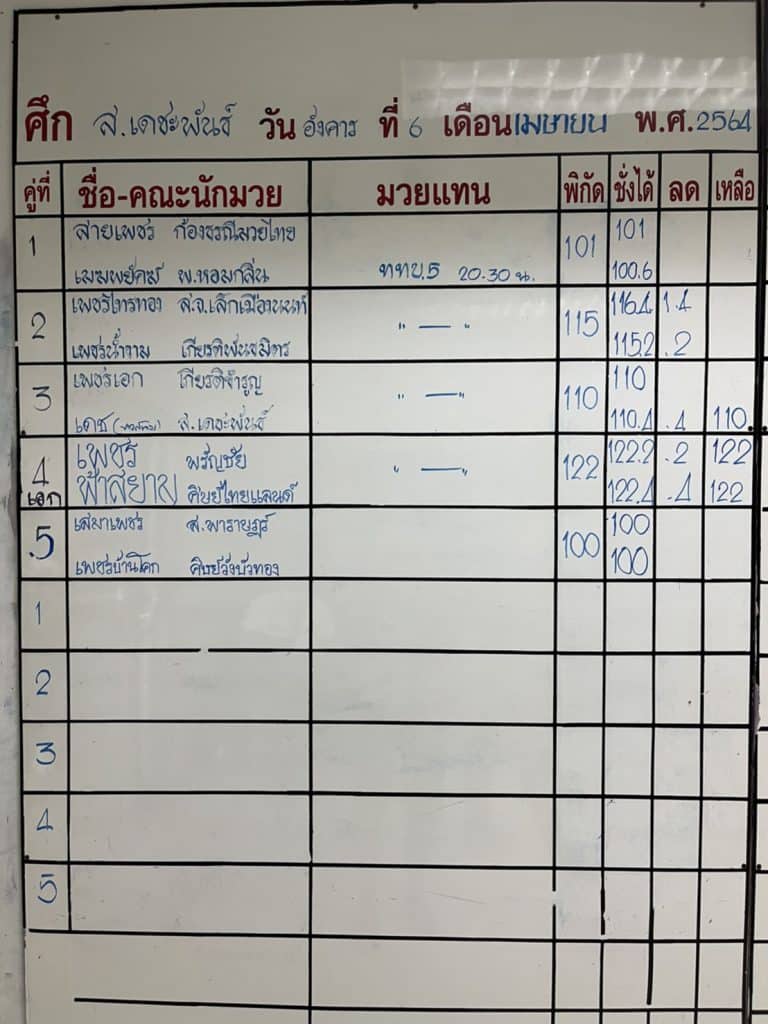 ศึก ส.เดชะพันธ์ วัน อังคาร ที่ 6 เดือน เมษายน พ.ศ. 2564
คู่ที่ ชื่อ-คณะนักมวย มวยแทน พิกัด ชั่งได้ ลด เหลือ
1 สายเพชร ก้องธรณีมวยไทย 101 101
พ.หอมกลิ่น ททบ.5 20.30 น. 100.6
2 เพชรไทรทอง ส.จ.เล็กเมืองนนท์ " — " 115 116.4 1.4
เพชรน้ำงาม เกียรติพันธมิตร 115.2 .2
3 เพชรเอก เกียรติจำรูญ " — " 110 110
เดช ส.เดชะพันธ์ 110.4 .4 110
4 เพชร พรัญชัย " — " 122 122.2 .2 122
เอก ฟ้าสยาม ศิษย์ไทยแลนด์ 122.4 .4 122
.5 เสมาเพชร 100 100
เพชรบ้านโคก ศิษย์วังบัวทอง 100
1
2
3
4
5